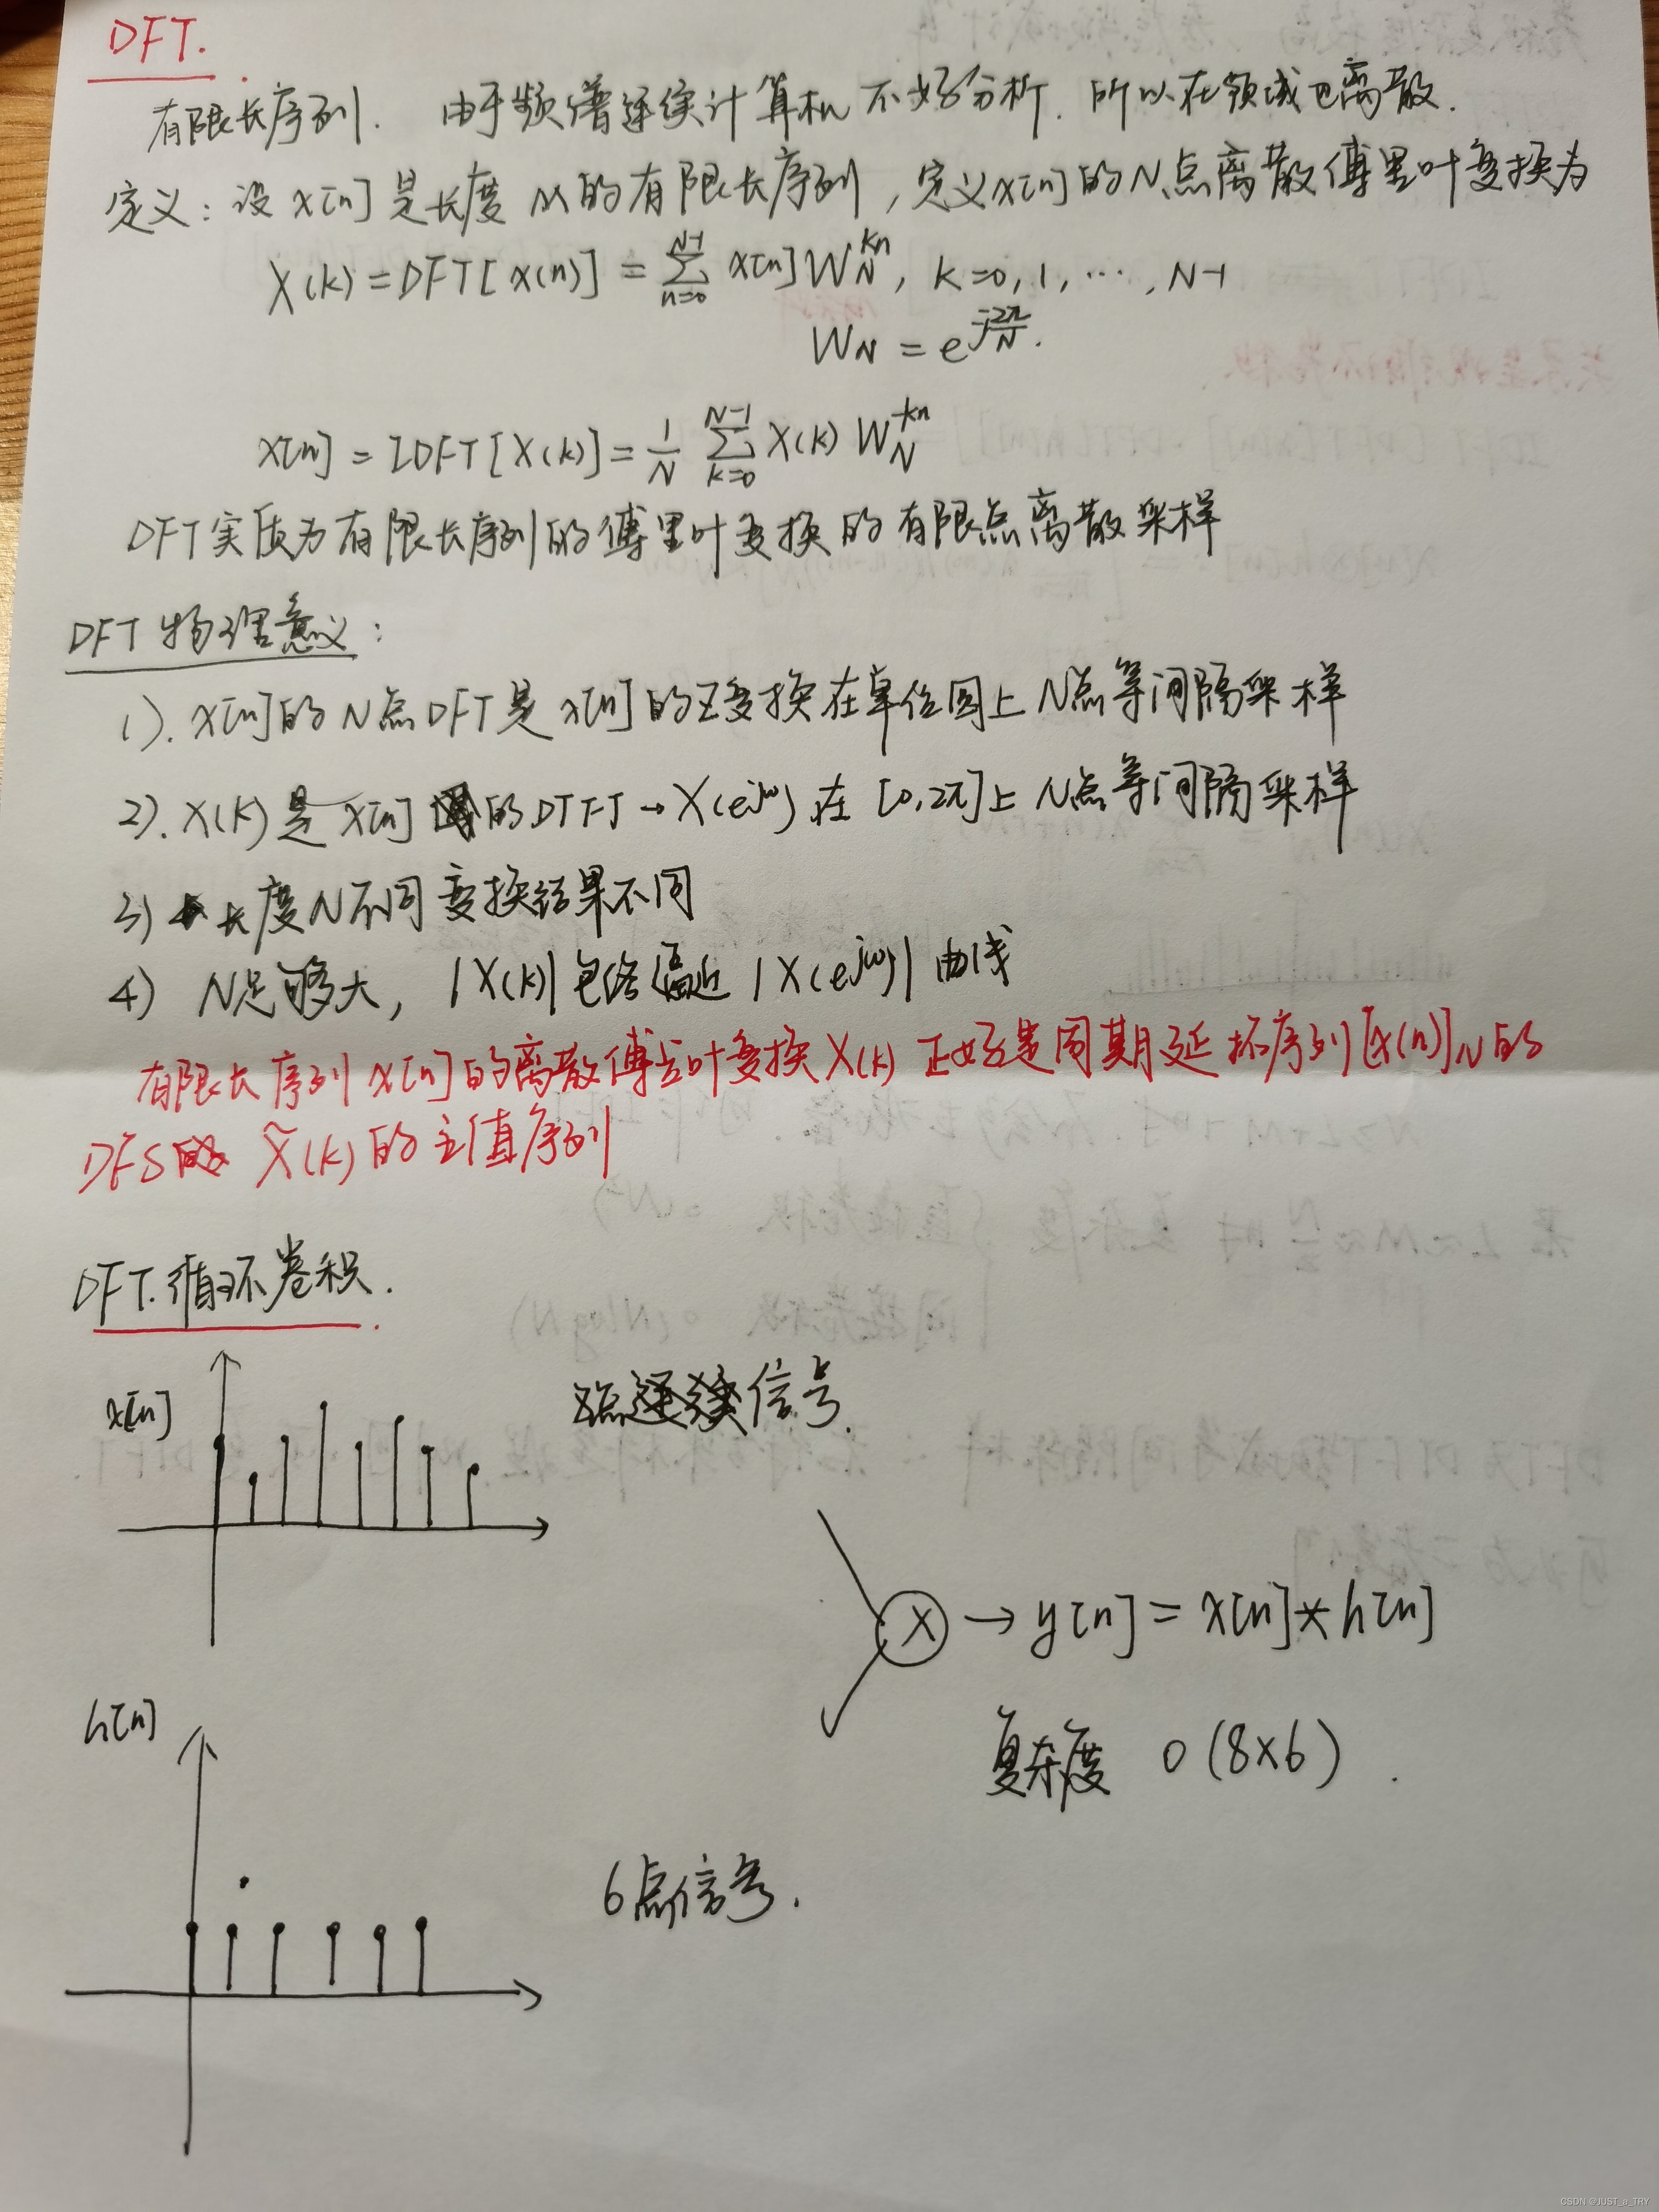 DFT.
有限长序列. 由于频谱连续计算机不好分析. 所以在频域也离散.
定义: 设 x[n] 是长度 M 的有限长序列, 定义x[n]的N点离散傅里叶变换为
X(k) = DFT[x(n)] = \sum_{n=0}^{N-1} x[n] W_N^{kn}, k=0, 1, ..., N-1
W_N = e^{-j\frac{2π}{N}}.
x[n] = IDFT[X(k)] = \frac{1}{N} \sum_{k=0}^{N-1} X(k) W_N^{-kn}
DFT实质为有限长序列的傅里叶变换的有限点离散采样
DFT 物理意义:
1). x[n]的N点DFT是x[n]的Z变换在单位圆上N点等间隔采样
2). X(k)是x[n]的DTFT→X(e^{jω})在[0,2π]上N点等间隔采样
3) 长度N不同变换结果不同
4) N足够大, |X(k)|包络逼近|X(e^{jω})|曲线
有限长序列x[n]的离散傅立叶变换X(k)正好是周期延拓序列[x(n)]_N的
DFS \tilde{X}(k)的主值序列
DFT.循环卷积.
x[n]
信号.
X → y[n] = x[n]*h[n]
h[n]
复杂度 O(8×6).
6点信号.
CSDN @JUST_n_TRY